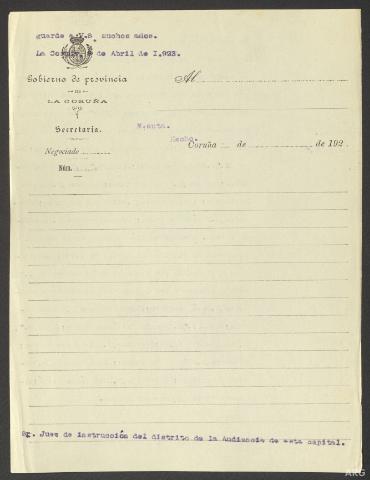 guarde a V.S. muchos años.
La Coruña de Abril de I.923.
Gobierno de provincia
DE
LA CORUÑA
Al
Secretaría.
Negociado
Núm.
Hecho.
Coruña de de 192
Sr. Juez de instrucción del distrito de la Audiencia de esta capital.
ARG